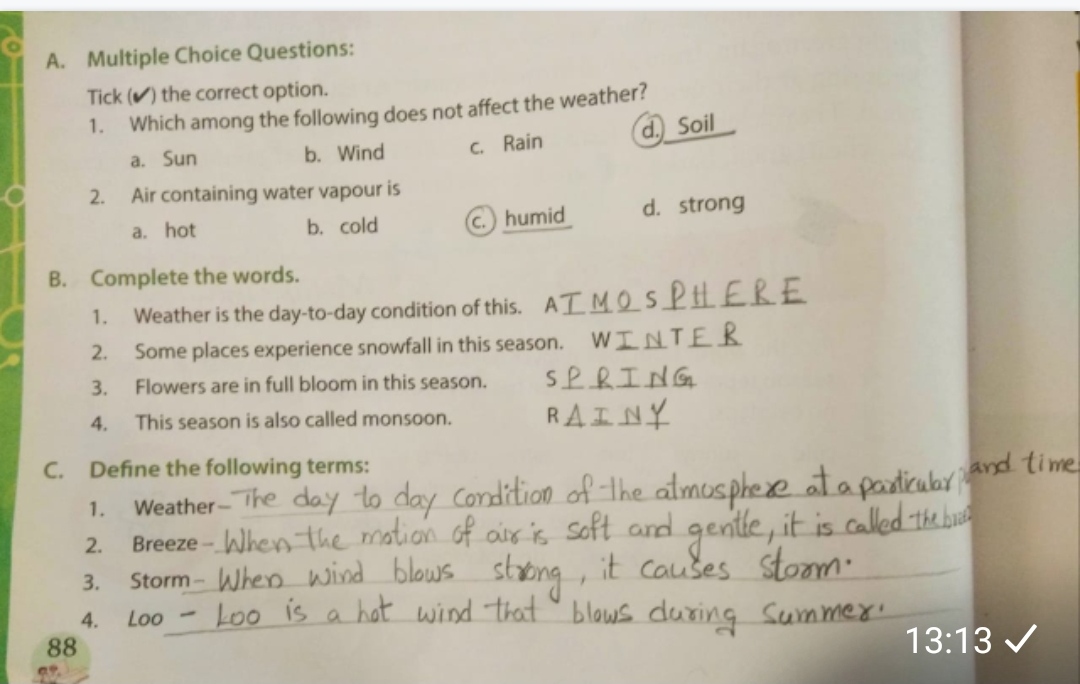 A. Multiple Choice Questions:
Tick (✔) the correct option.
1. Which among the following does not affect the weather?
a. Sun b. Wind c. Rain d. Soil
2. Air containing water vapour is
a. hot b. cold c. humid d. strong
B. Complete the words.
1. Weather is the day-to-day condition of this. ATMOSPHERE
2. Some places experience snowfall in this season. WINTER
3. Flowers are in full bloom in this season. SPRING
4. This season is also called monsoon. RAINY
C. Define the following terms:
1. Weather – The day to day condition of the atmosphere at a particular and time
2. Breeze – When the motion of air is soft and gentle, it is called the
3. Storm – When wind blows strong, it causes storm.
4. Loo – Loo is a hot wind that blows during summer.
88
13:13 ✓